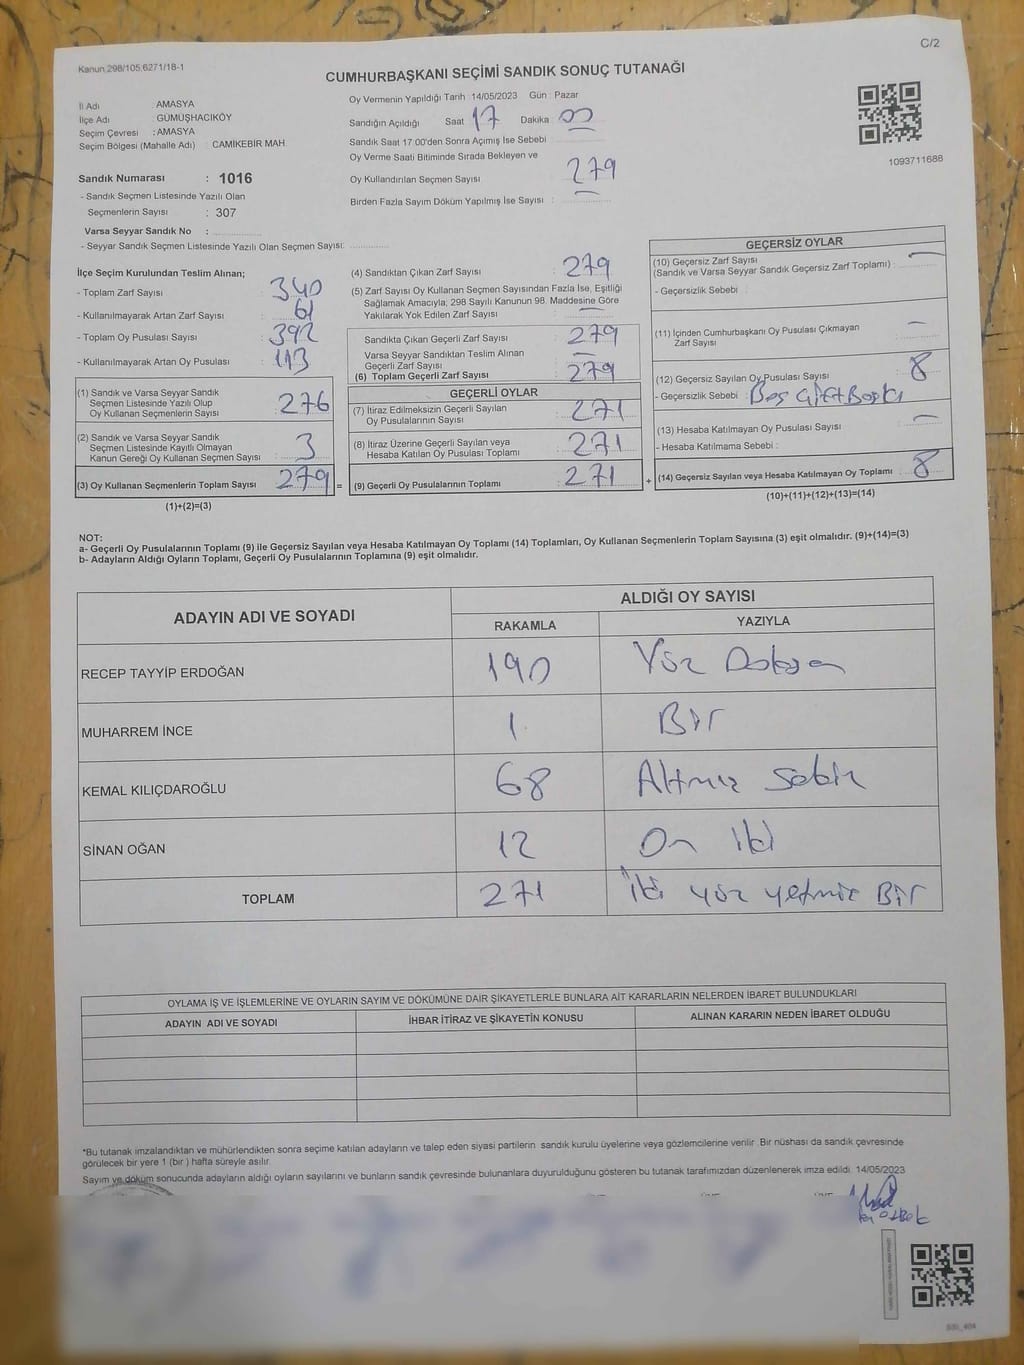 C/2
Kanun 298/105,6271/18-1
CUMHURBAŞKANI SEÇİMİ SANDIK SONUÇ TUTANAĞI
İl Adı AMASYA
İlçe Adı GÜMÜŞHACIKÖY
Seçim Çevresi : AMASYA
Seçim Bölgesi (Mahalle Adı) CAMİKEBİR MAH.
Sandık Numarası : 1016
- Sandık Seçmen Listesinde Yazılı Olan
Seçmenlerin Sayısı : 307
Varsa Seyyar Sandık No :
- Seyyar Sandık Seçmen Listesinde Yazılı Olan Seçmen Sayısı:
Oy Vermenin Yapıldığı Tarih : 14/05/2023 Gün : Pazar
Sandığın Açıldığı Saat 17 Dakika 00
Sandık Saat 17.00'den Sonra Açımış İse Sebebi :
Oy Verme Saati Bitiminde Sırada Bekleyen ve
Oy Kullandırılan Seçmen Sayısı 279
Birden Fazla Sayım Döküm Yapılmış İse Sayısı :
1093711688
İlçe Seçim Kurulundan Teslim Alınan;
- Toplam Zarf Sayısı : 340
- Kullanılmayarak Artan Zarf Sayısı : 61
- Toplam Oy Pusulası Sayısı : 392
- Kullanılmayarak Artan Oy Pusulası : 113
(1) Sandık ve Varsa Seyyar Sandık
Seçmen Listesinde Yazılı Olup
Oy Kullanan Seçmenlerin Sayısı : 276
(2) Sandık ve Varsa Seyyar Sandık
Seçmen Listesinde Kayıtlı Olmayan
Kanun Gereği Oy Kullanan Seçmen Sayısı : 3
(3) Oy Kullanan Seçmenlerin Toplam Sayısı : 279 =
(1)+(2)=(3)
(4) Sandıktan Çıkan Zarf Sayısı : 279
(5) Zarf Sayısı Oy Kullanan Seçmen Sayısından Fazla İse, Eşitliği
Sağlamak Amacıyla; 298 Sayılı Kanunun 98. Maddesine Göre
Yakılarak Yok Edilen Zarf Sayısı : —
Sandıkta Çıkan Geçerli Zarf Sayısı : 279
Varsa Seyyar Sandıktan Teslim Alınan
Geçerli Zarf Sayısı : —
(6) Toplam Geçerli Zarf Sayısı : 279
GEÇERLİ OYLAR
(7) İtiraz Edilmeksizin Geçerli Sayılan
Oy Pusulasının Sayısı : 271
(8) İtiraz Üzerine Geçerli Sayılan veya
Hesaba Katılan Oy Pusulası Toplamı : 271
(9) Geçerli Oy Pusulalarının Toplamı : 271 +
GEÇERSİZ OYLAR
(10) Geçersiz Zarf Sayısı
(Sandık ve Varsa Seyyar Sandık Geçersiz Zarf Toplamı) : —
- Geçersizlik Sebebi :
(11) İçinden Cumhurbaşkanı Oy Pusulası Çıkmayan
Zarf Sayısı : —
(12) Geçersiz Sayılan Oy Pusulası Sayısı : 8
- Geçersizlik Sebebi : Boş Çift Baskı
(13) Hesaba Katılmayan Oy Pusulası Sayısı : —
- Hesaba Katılmama Sebebi :
(14) Geçersiz Sayılan veya Hesaba Katılmayan Oy Toplamı : 8
(10)+(11)+(12)+(13)=(14)
NOT:
a- Geçerli Oy Pusulalarının Toplamı (9) ile Geçersiz Sayılan veya Hesaba Katılmayan Oy Toplamı (14) Toplamları, Oy Kullanan Seçmenlerin Toplam Sayısına (3) eşit olmalıdır. (9)+(14)=(3)
b- Adayların Aldığı Oyların Toplamı, Geçerli Oy Pusulalarının Toplamına (9) eşit olmalıdır.
ADAYIN ADI VE SOYADI ALDIĞI OY SAYISI
RAKAMLA YAZIYLA
RECEP TAYYİP ERDOĞAN 190 Yüz Doksan
MUHARREM İNCE 1 Bir
KEMAL KILIÇDAROĞLU 68 Altmış Sekiz
SİNAN OĞAN 12 On iki
TOPLAM 271 iki yüz yetmiş Bir
OYLAMA İŞ VE İŞLEMLERİNE VE OYLARIN SAYIM VE DÖKÜMÜNE DAİR ŞİKAYETLERLE BUNLARA AİT KARARLARIN NELERDEN İBARET BULUNDUKLARI
ADAYIN ADI VE SOYADI İHBAR İTİRAZ VE ŞİKAYETİN KONUSU ALINAN KARARIN NEDEN İBARET OLDUĞU
*Bu tutanak imzalandıktan ve mühürlendikten sonra seçime katılan adayların ve talep eden siyasi partilerin sandık kurulu üyelerine veya gözlemcilerine verilir. Bir nüshası da sandık çevresinde
görülecek bir yere 1 (bir ) hafta süreyle asılır.
Sayım ve döküm sonucunda adayların aldığı oyların sayılarını ve bunların sandık çevresinde bulunanlara duyurulduğunu gösteren bu tutanak tarafımızdan düzenlenerek imza edildi. 14/05/2023